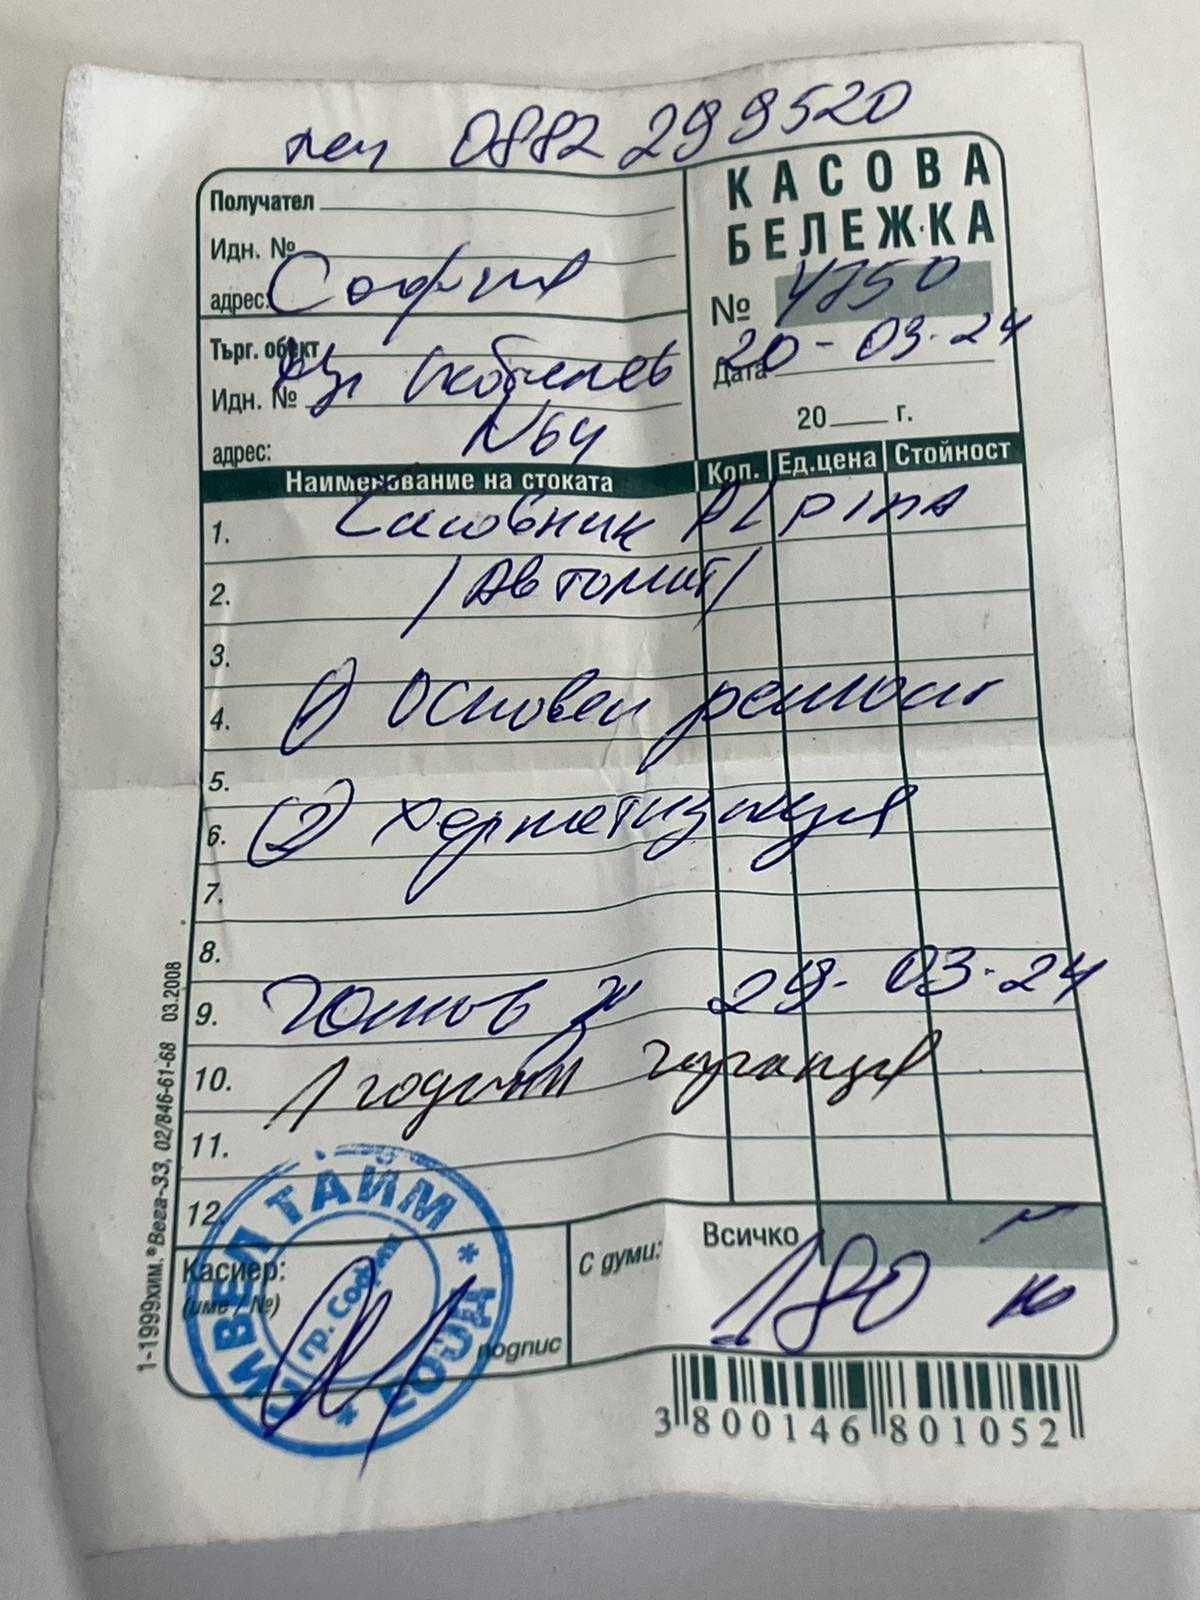 тел 0882 299520
КАСОВА
БЕЛЕЖКА
Получател
Идн. №
адрес: София
№ 4750
Търг. обект
Идн. №
ул Скобелев
адрес: N64
20-03-24
Дата
20 г.
Наименование на стоката Кол. Ед.цена Стойност
1. Часовник ALpina
2. /Автомат/
3.
4. 1) Основен ремонт
5.
6. 2) херметизация
7.
8.
9. Готов за 29-03-24
10. 1 година гаранция
11.
12.
Касиер:
(име / №)
подпис
С думи:
Всичко
180 лв
ЕМВЕЛ ТАЙМ * ЕООД *
гр. София
1-1999хим.®Вега-33, 02/846-61-68 03.2008
3 800146 801052